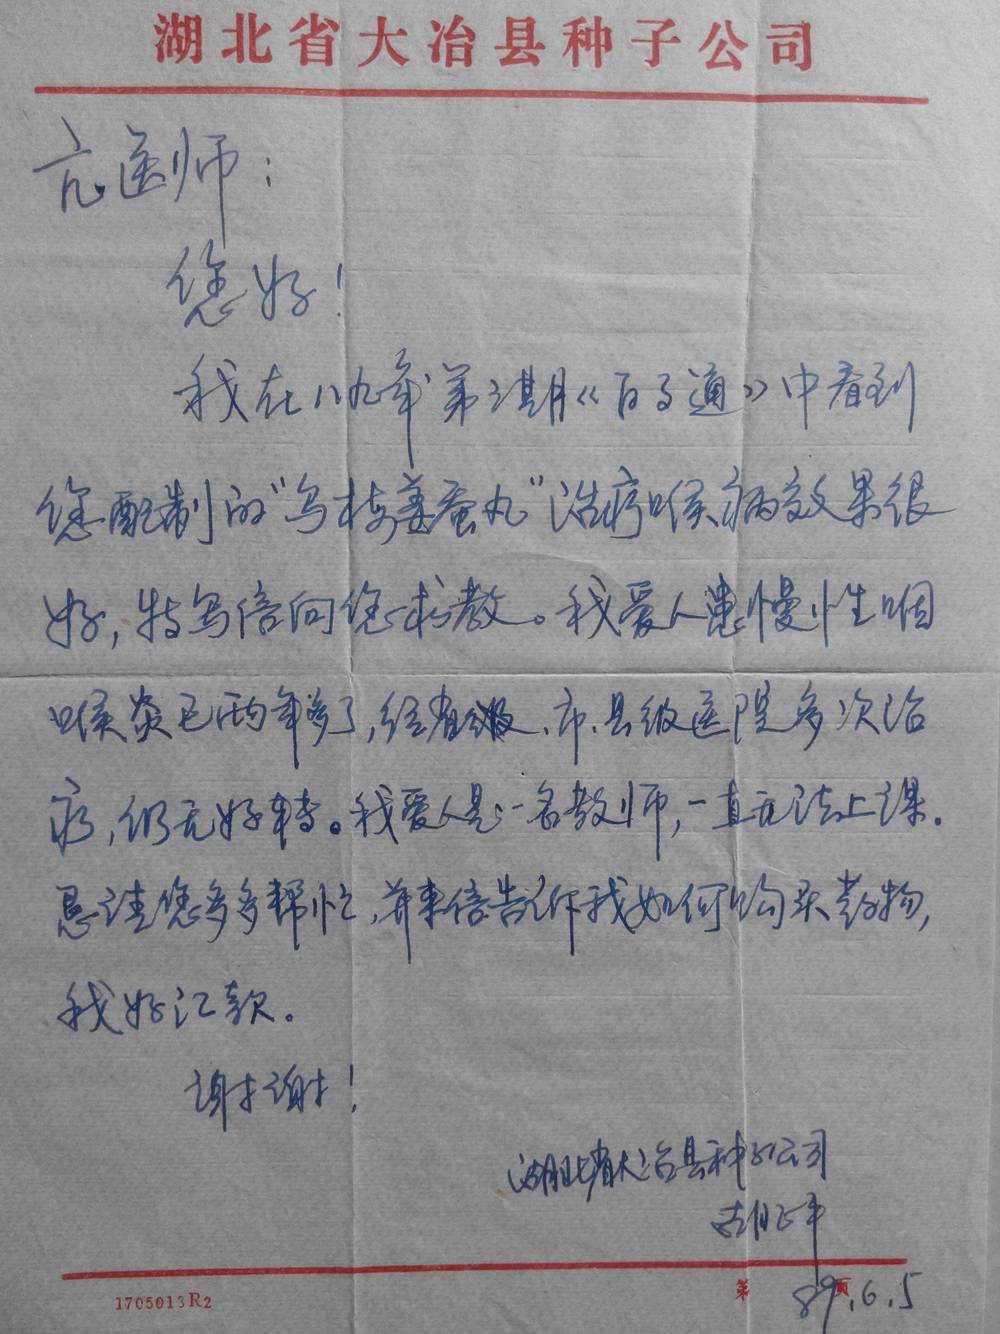 湖北省大冶县种子公司
亢医师：
您好！
我在八九年第2期《百事通》中看到
您配制的“乌梅姜蚕丸”治疗喉病效果很
好，特写信向您求教。我爱人患慢性咽
喉炎已两年多了，经省级、市、县级医院多次治
疗，仍无好转。我爱人是一名教师，一直无法上课.
恳请您多多帮忙，并来信告诉我如何购买药物，
我好汇款。
谢谢！
湖北省大冶县种子公司
胡正平
1705013R2
第 页
89.6.5